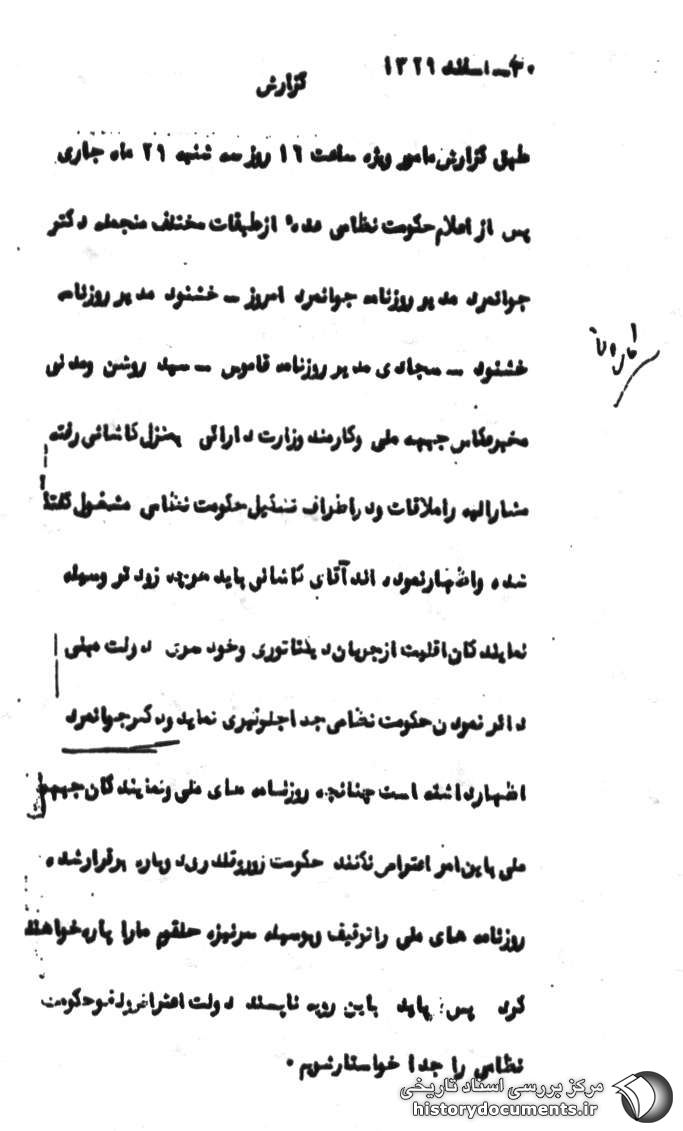 ۳۰ـ اسفند ۱۳۲۹
گزارش
طبق گزارش مامور ویژه ساعت ۱۶ روز سه شنبه ۲۹ ماه جاری
پس از اعلام حکومت نظامی عده از طبقات مختلف منجمله دکتر
جوانمرد مدیر روزنامه جوانمرد امروز ـ خشنود مدیر روزنامه
خشنود ـ سجادی مدیر روزنامه قاموس ـ سید روشن ومدنی
مخبرعکاس جبهه ملی وکارمند وزارت دارائی بمنزل کاشانی رفته
مشارالیه را ملاقات ودراطراف تشکیل حکومت نظامی مشغول گفتگو
شده واظهارنموده اند آقای کاشانی باید هرچه زود تر وسیله
نمایندگان اقلیت ازجریان دیکتاتوری وخود سری دولت مبنی
دائر نمودن حکومت نظامی جدا جلوگیری نماید ودکترجوانمرد
اظهارداشته است چنانچه روزنامه های ملی ونمایندگان جبهه
ملی باین امر اعتراض نکنند حکومت زوروقلدری دوباره برقرارشده
روزنامه های ملی را توقیف وبوسیله سرنیزه حلقوم مارا پاره خواهند
کرد پس باید باین رویه ناپسند دولت اعتراض ولغو حکومت
نظامی را جدا خواستارشویم ۰
مرکز بررسی اسناد تاریخی
historydocuments.ir